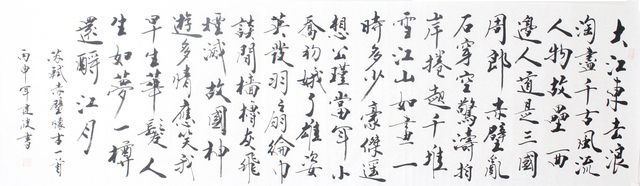 大江東去浪
淘盡千古風流
人物故壘西
邊人道是三國
周郎赤壁亂
石穿空驚濤拍
岸捲起千堆
雪江山如畫一
時多少豪傑遥
想公瑾當年小
喬初嫁了雄姿
英發羽扇綸巾
談間檣櫓灰飛
煙滅故國神
遊多情應笑我
早生華髮人
生如夢一樽
還酹江月
苏軾赤壁懷古一首
丙申年建波書